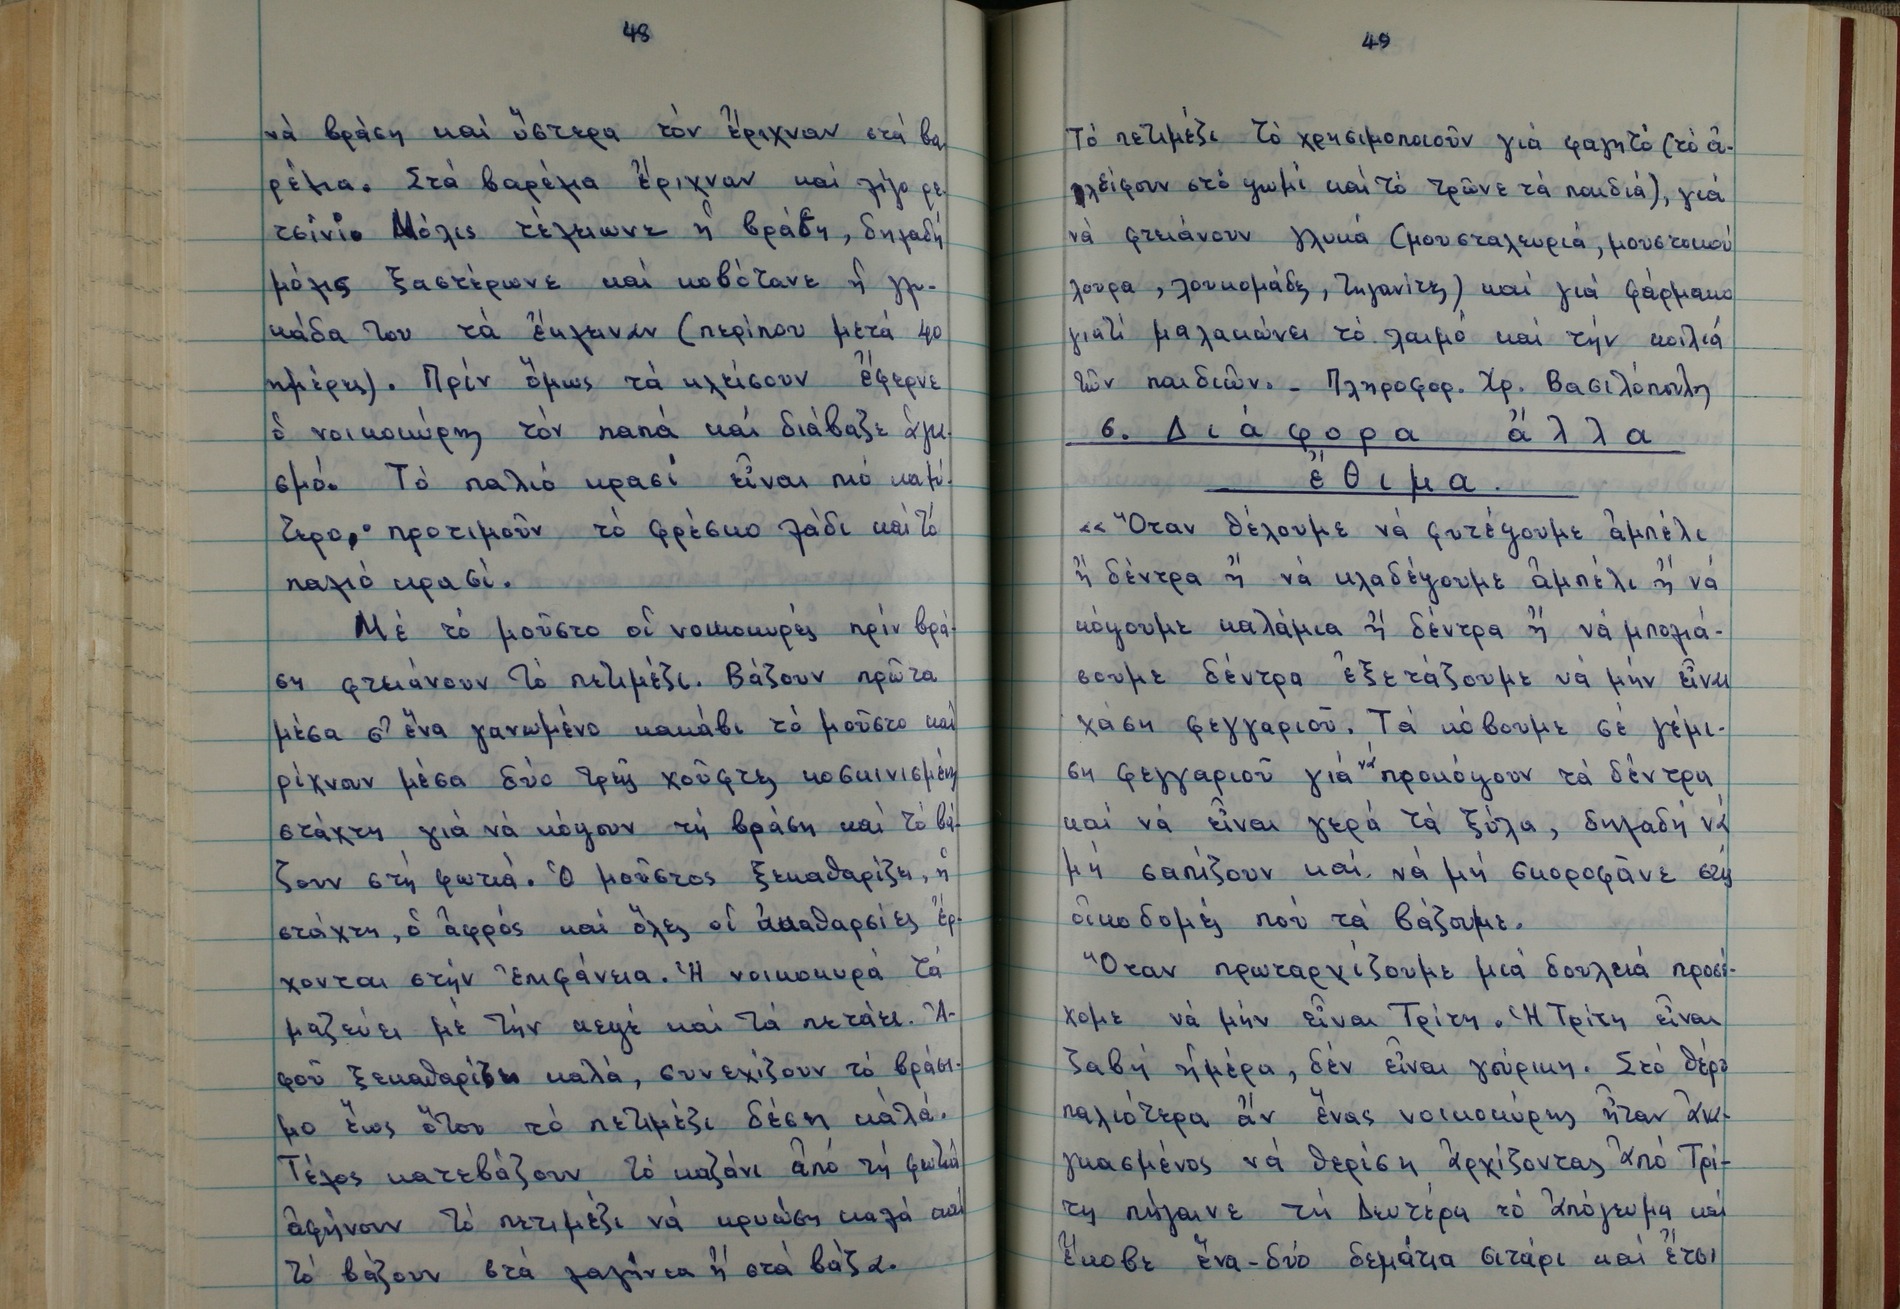 48
νά βράση καί ὕστερα τόν ἔριχναν στά βα-
ρέλια. Στά βαρέλια ἔριχναν καί λίγο ρε-
τσίνι. Μόλις τέλειωνε ἡ βράση, δηλαδή
μόλις ξαστέρωνε καί κοβότανε ἡ γλυ-
κάδα του τά ἔκλειναν (περίπου μετά 40
ημέρες). Πρίν ὅμως τά κλείσουν ἔφερνε
ὁ νοικοκύρης τόν παπά καί διάβαζε ἁγια-
σμό. Τό παλιό κρασί εἶναι πιό καλύ-
τερο, προτιμοῦν τό φρέσκο λάδι καί τό
παλιό κρασί.
Μέ τό μοῦστο οἱ νοικοκυρές πρίν βρά-
ση φτειάνουν τό πετιμέζι. Βάζουν πρῶτα
μέσα σ' ἕνα γανωμένο κακάβι τό μοῦστο καί
ρίχνουν μέσα δύο τρεῖς χοῦφτες κοσκινισμένη
στάχτη γιά νά κόψουν τή βράση καί τό βά-
ζουν στή φωτιά. Ὁ μοῦστος ξεκαθαρίζει, ἡ
στάχτη, ὁ ἀφρός καί ὅλες οἱ ἀκαθαρσίες ἔρ-
χονται στήν ἐπιφάνεια. Ἡ νοικοκυρά τά
μαζεύει μέ τήν κεψέ καί τά πετάει. Ἀ-
φοῦ ξεκαθαρίση καλά, συνεχίζουν τό βράσι-
μο ἕως ὅτου τό πετιμέζι δέση καλά.
Τέλος κατεβάζουν τό καζάνι ἀπό τή φωτιά
ἀφήνουν τό πετιμέζι νά κρυώση καλά καί
τό βάζουν στά λαγήνια ἤ στά βάζα.
49
Τό πετιμέζι τό χρησιμοποιοῦν γιά φαγητό (τό ἀ-
λείφουν στό ψωμί καί τό τρῶνε τά παιδιά), γιά
νά φτειάνουν γλυκά (μουσταλευριά, μουστοκού
λουρα, λουκομάδες, τηγανίτες) καί γιά φάρμακο
γιατί μαλακώνει τό λαιμό καί τήν κοιλιά
τῶν παιδιῶν. - Πληροφορ. Χρ. Βασιλόπουλης
6. Διάφορα ἄλλα
ἔθιμα.
«Ὅταν θέλουμε νά φυτέψουμε ἀμπέλι
ἤ δέντρα ἤ νά κλαδέψουμε ἀμπέλι ἤ νά
κόψουμε καλάμια ἤ δέντρα ἤ νά μπολιά-
σουμε δέντρα ἐξετάζουμε νά μήν εἶναι
χάση φεγγαριοῦ. Τά κόβουμε σέ γέμι-
ση φεγγαριοῦ γιά νά προκόψουν τά δέντρα
καί νά εἶναι γερά τά ξύλα, δηλαδή νά
μή σαπίζουν καί νά μή σκοροφᾶνε στίς
οἰκοδομές πού τά βάζουμε.
Ὅταν πρωταρχίζουμε μιά δουλειά προσέ-
χομε νά μήν εἶναι Τρίτη. Ἡ Τρίτη εἶναι
ζαβή ἡμέρα, δέν εἶναι γούρικη. Στό θέρο
παλιότερα ἄν ἕνας νοικοκύρης ἦταν ἀνα-
γκασμένος νά θερίση ἀρχίζοντας ἀπό Τρί-
τη πήγαινε τή Δευτέρα τό ἀπόγευμα καί
ἔκοβε ἕνα-δύο δεμάτια σιτάρι καί ἔτσι